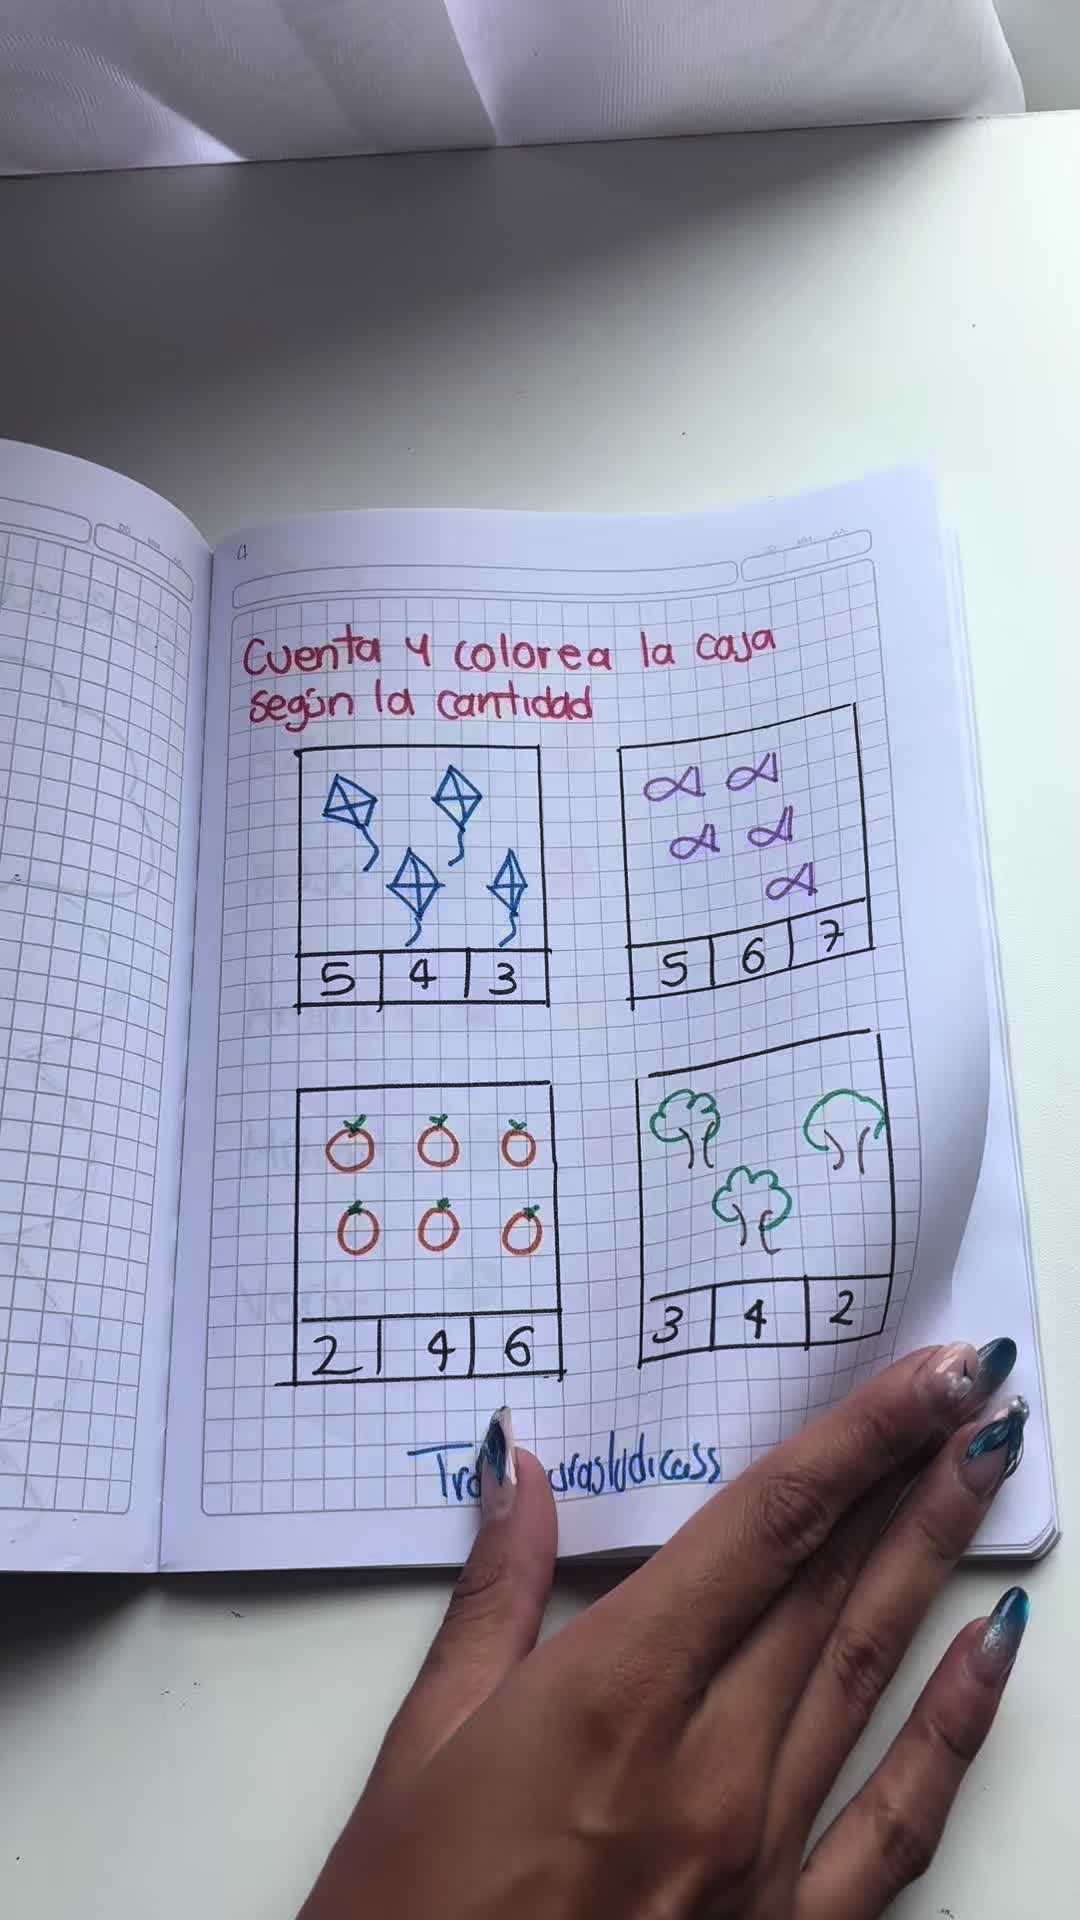 Cuenta y colorea la caja
según la cantidad
5 4 3
5 6 7
2 4 6
3 4 2